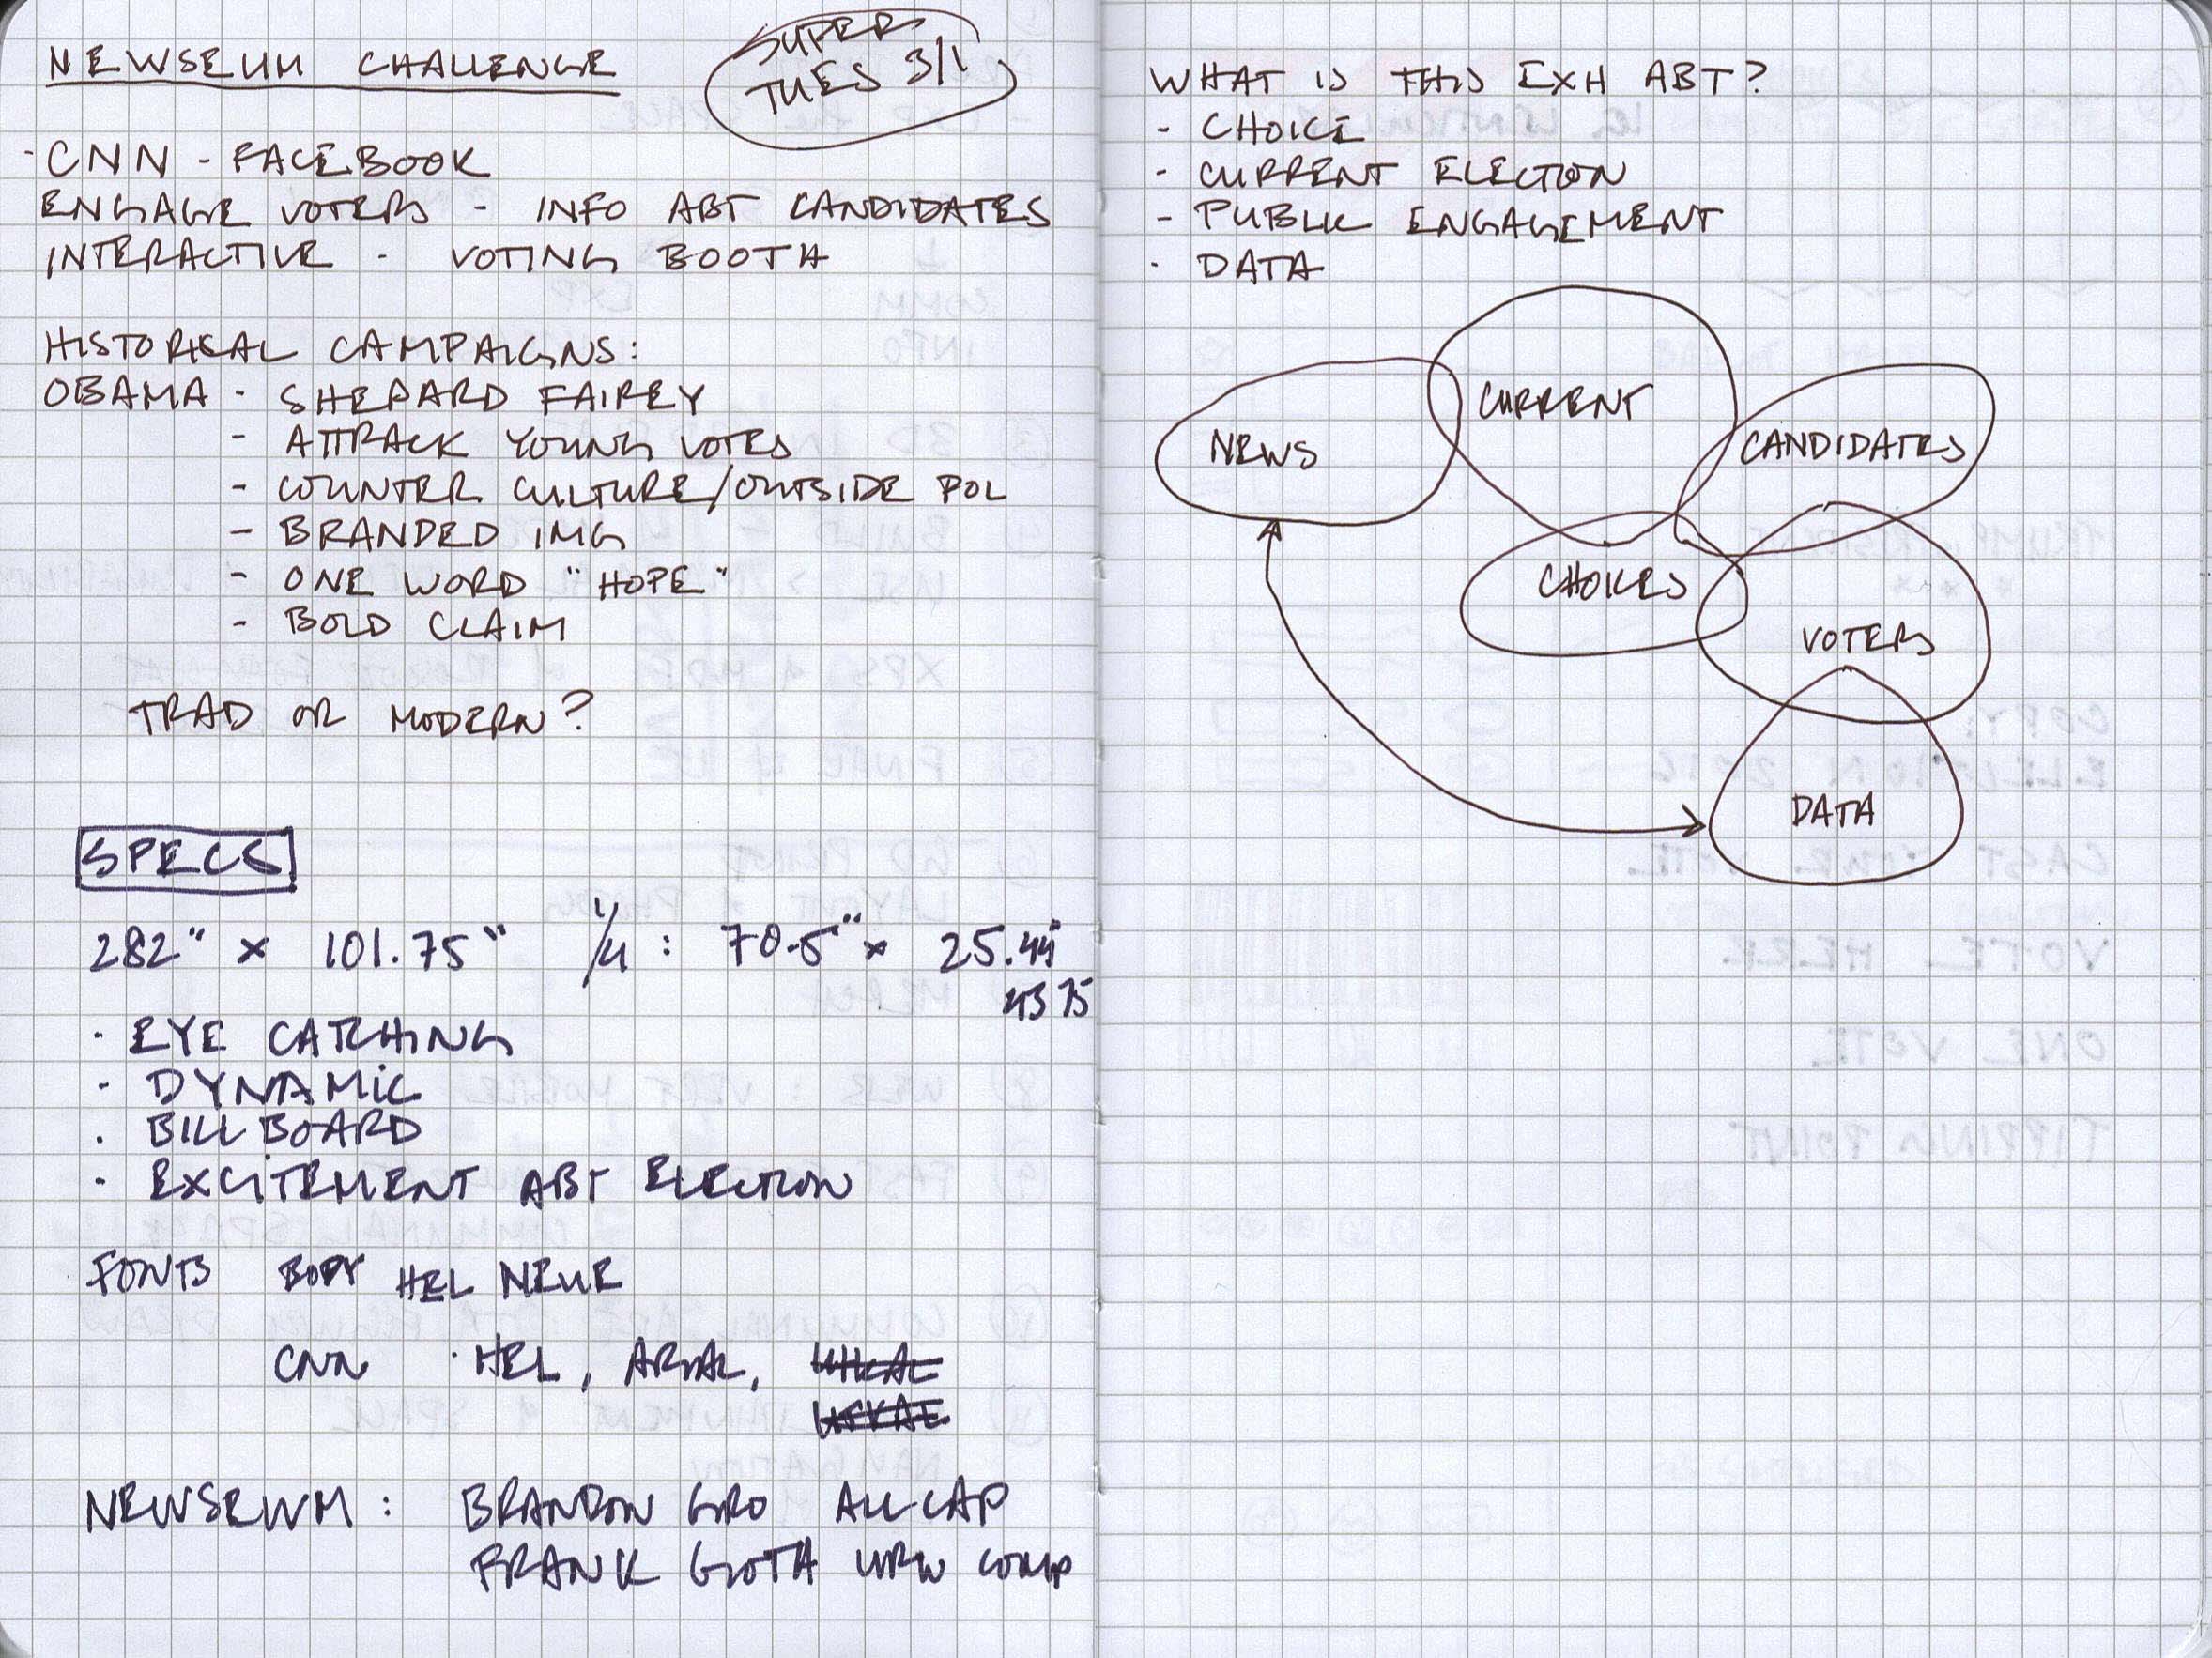 NEWSEUM CHALLENGE
SUPER
TUES 3/1
- CNN - FACEBOOK
ENGAGE VOTERS - INFO ABT CANDIDATES
INTERACTIVE - VOTING BOOTH
HISTORICAL CAMPAIGNS:
OBAMA - SHEPARD FAIREY
- ATTRACK YOUNG VOTES
- COUNTER CULTURE/OUTSIDE POL
- BRANDED IMG
- ONE WORD "HOPE"
- BOLD CLAIM
TRAD OR MODERN?
SPECS
282" x 101.75" 1/4 : 70.5" x 25.44"
4375
· EYE CATCHING
· DYNAMIC
· BILLBOARD
· EXCITEMENT ABT ELECTION
FONTS BODY HEL NEUE
CNN · HEL, ARIAL,
NEWSEUM: BRANDON GRO ALL CAP
FRANK GOTH URW COMP
WHAT IS THIS EXH ABT?
- CHOICE
- CURRENT ELECTION
- PUBLIC ENGAGEMENT
- DATA
CURRENT
NEWS
CANDIDATES
CHOICES
VOTERS
DATA